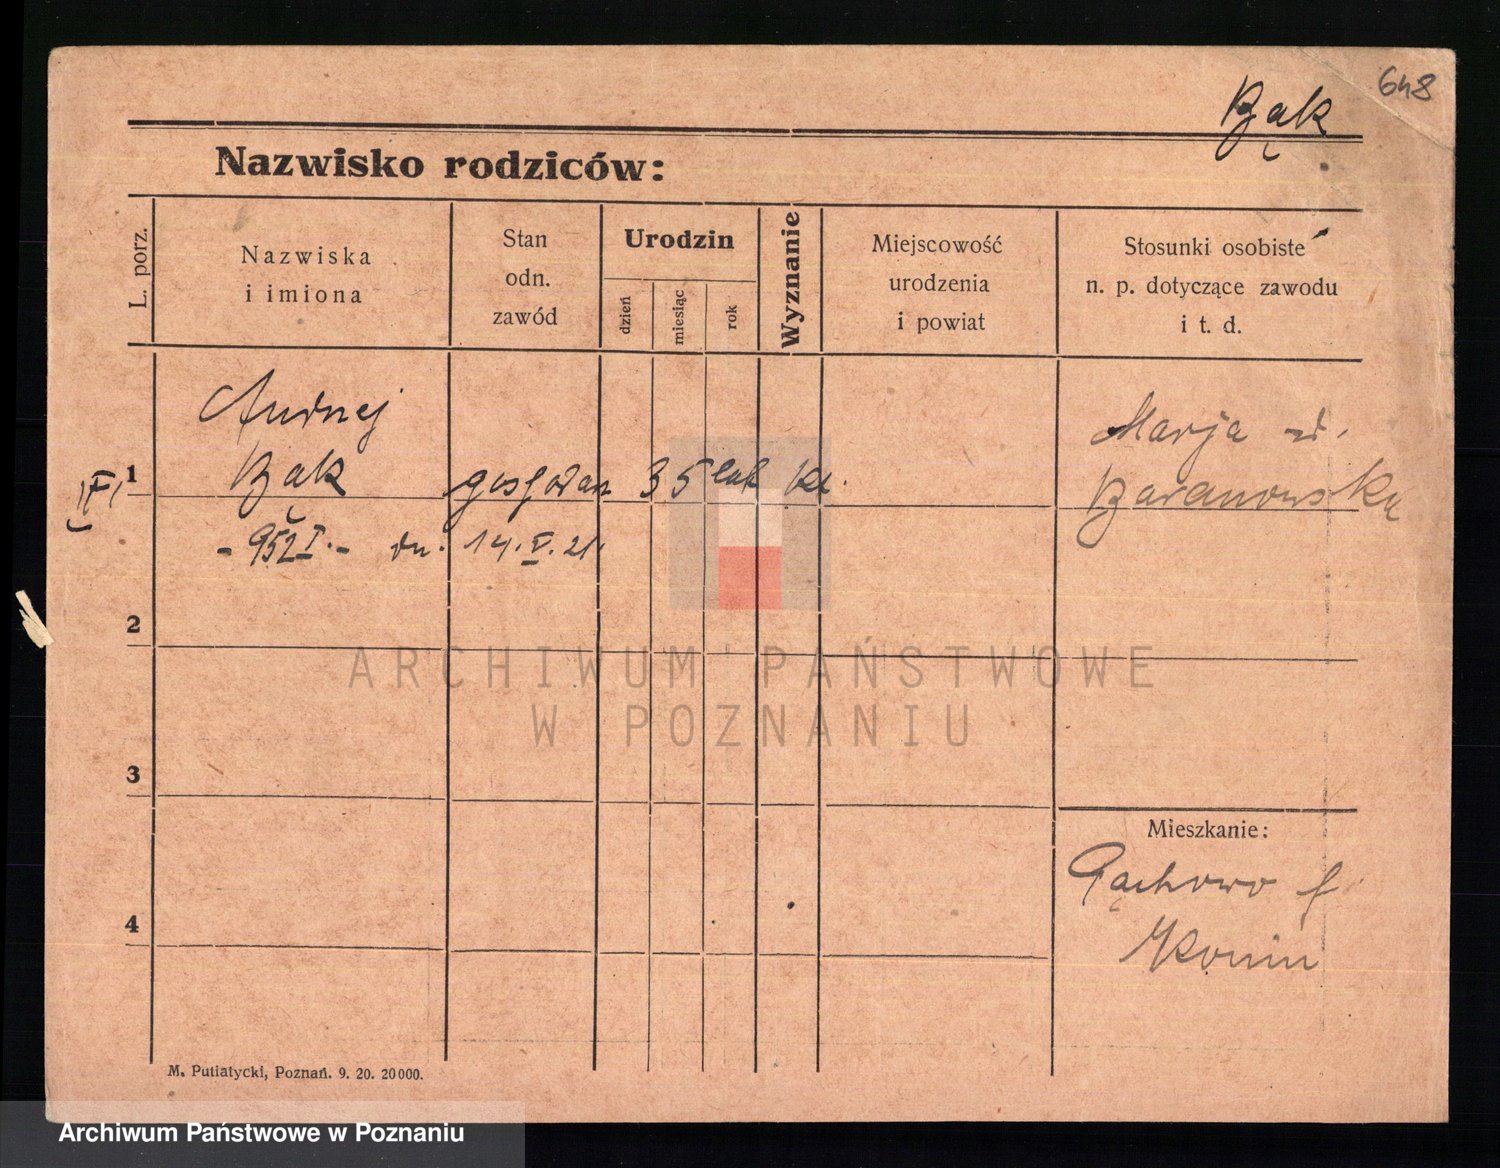 648
Bąk
Nazwisko rodziców:
L. porz.
Nazwiska
i imiona
Stan
odn.
zawód
Urodzin
dzień
miesiąc
rok
Wyznanie
Miejscowość
urodzenia
i powiat
Stosunki osobiste
n. p. dotyczące zawodu
i t. d.
Andrzej
Bąk
1
35 lat
kt.
Marja
Baranowska
- 952 I. - dn. 14. V. 21.
2
3
4
Mieszkanie:
Konin
ARCHIWUM PAŃSTWOWE
W POZNANIU
M. Putiatycki, Poznań. 9. 20. 20000.
Archiwum Państwowe w Poznaniu